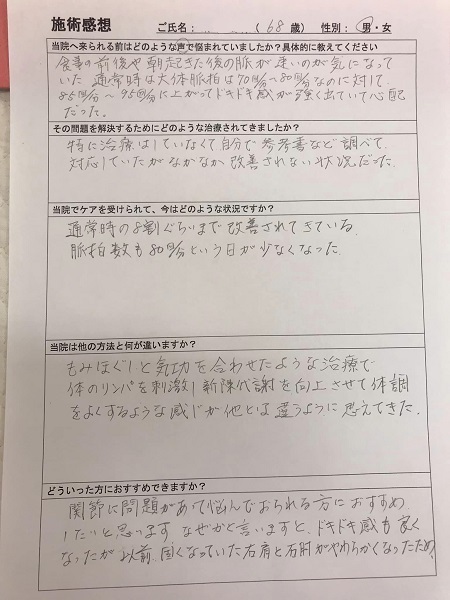 施術感想 ご氏名： (68 歳) 性別：男・女
当院へ来られる前はどのような声で悩まれていましたか？具体的に教えてください
食事の前後や朝起きた後の脈が速いのが気になって
いた 通常時は大体脈拍は70回/分〜80回/分なのに対して
85回/分〜95回/分に上がってドキドキ感が強く出ていて心配
だった。
その問題を解決するためにどのような治療されてきましたか？
特に治療はしていなくて自分で参考書など調べて
対応していたがなかなか改善されない状況だった
当院でケアを受けられて、今はどのような状況ですか？
通常時の8割ぐらいまで改善されてきている
脈拍数も80回/分という日が少なくなった
当院は他の方法と何が違いますか？
もみほぐしと気功を合わせたような治療で
体のリンパを刺激し新陳代謝を向上させて体調
をよくするような感じが他とは違うように思えてきた.
どういった方におすすめできますか？
関節に問題があって悩んでおられる方におすすめ
したいと思います なぜかと言いますと、ドキドキ感も良く
なったが 以前、固くなっていた右肩と右肘がやわらかくなったため